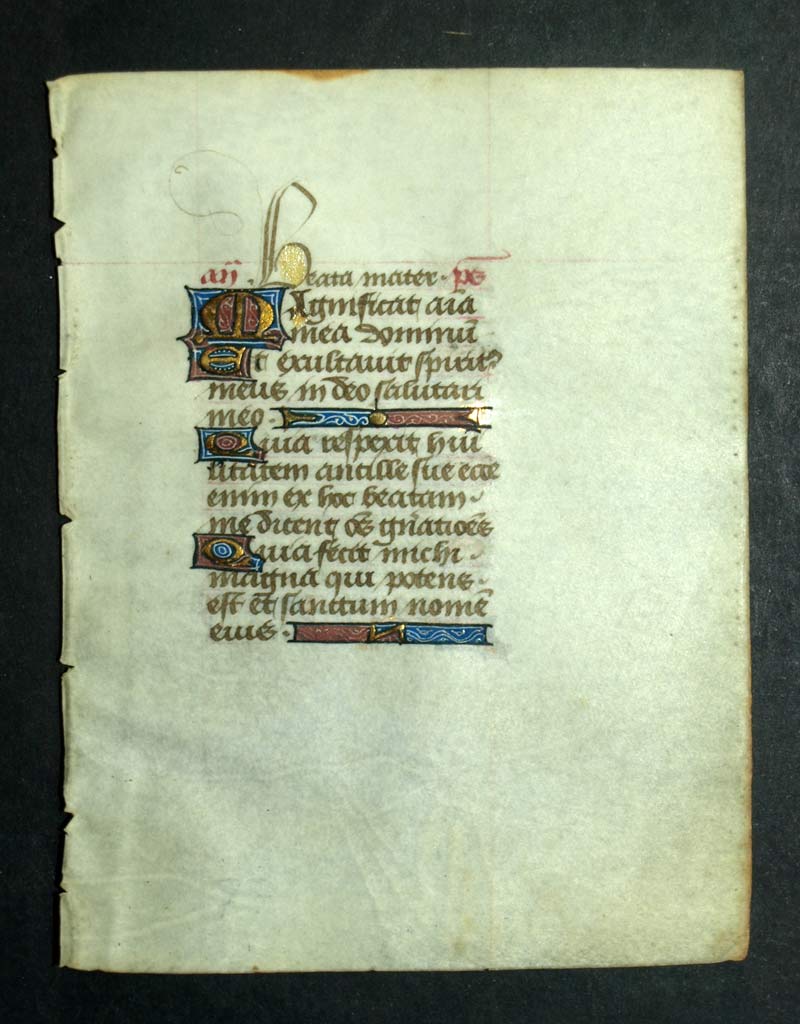 añ. Beata mater. ps
Magnificat aīa
mea dominū
Et exultavit spirit⁹
meus in deo salutari
meo.
Quia respexit hui
litatem ancille sue ecce
enim ex hoc beatam.
me dicent oēs gn̄atioēs
Quia fecit michi.
magna qui potens.
est et sanctum nomē
eius.